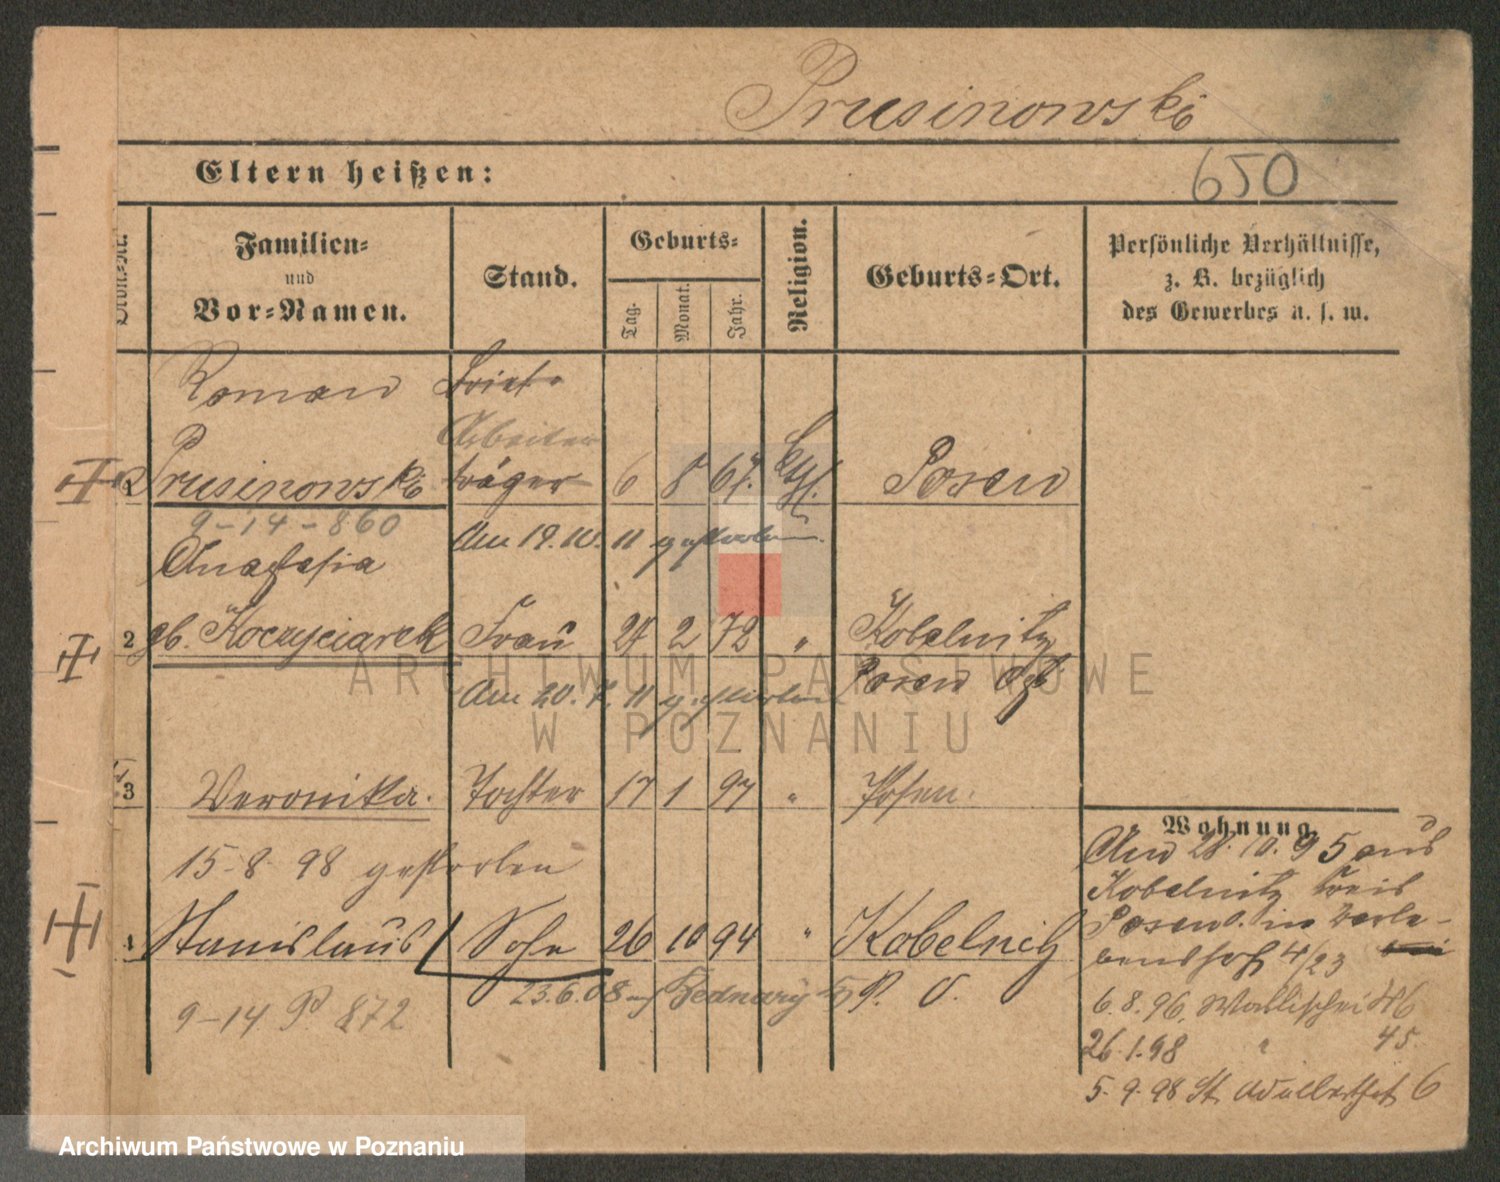 Prusinowski
650
Eltern heißen:
Familien=
und
Vor=Namen.
Stand.
Geburts=
Tag.
Monat.
Jahr.
Religion.
Geburts=Ort.
Persönliche Verhältnisse,
z. B. bezüglich
des Gewerbes u. s. w.
Roman Brief=
Arbeiter
Prusinowski träger 6 8 67. Kth. Posen
9-14-860
Am 19. 10. 11 gestorben.
Anastasia
2 gb. Koczyciarek Frau 24 2 72 " Kobelnitz
Posen
Am 20. 7. 11 gestorben
3 Veronika. Tochter 17 1 97 " Posen.
15.8.98 gestorben
4 Stanislaus Sohn 26 10 94 " Kobelnitz
23.6.08 Bednary P. O.
9-14 P. 872
Wohnung
Am 28. 10. 95 aus
Kobelnitz Kreis
Posen O. in
4/23
6.8.96. Wallischei 46
26.1.98 " 45
5.9.98 St. Adalbertstr 6
ARCHIWUM PAŃSTWOWE
W POZNANIU
Archiwum Państwowe w Poznaniu